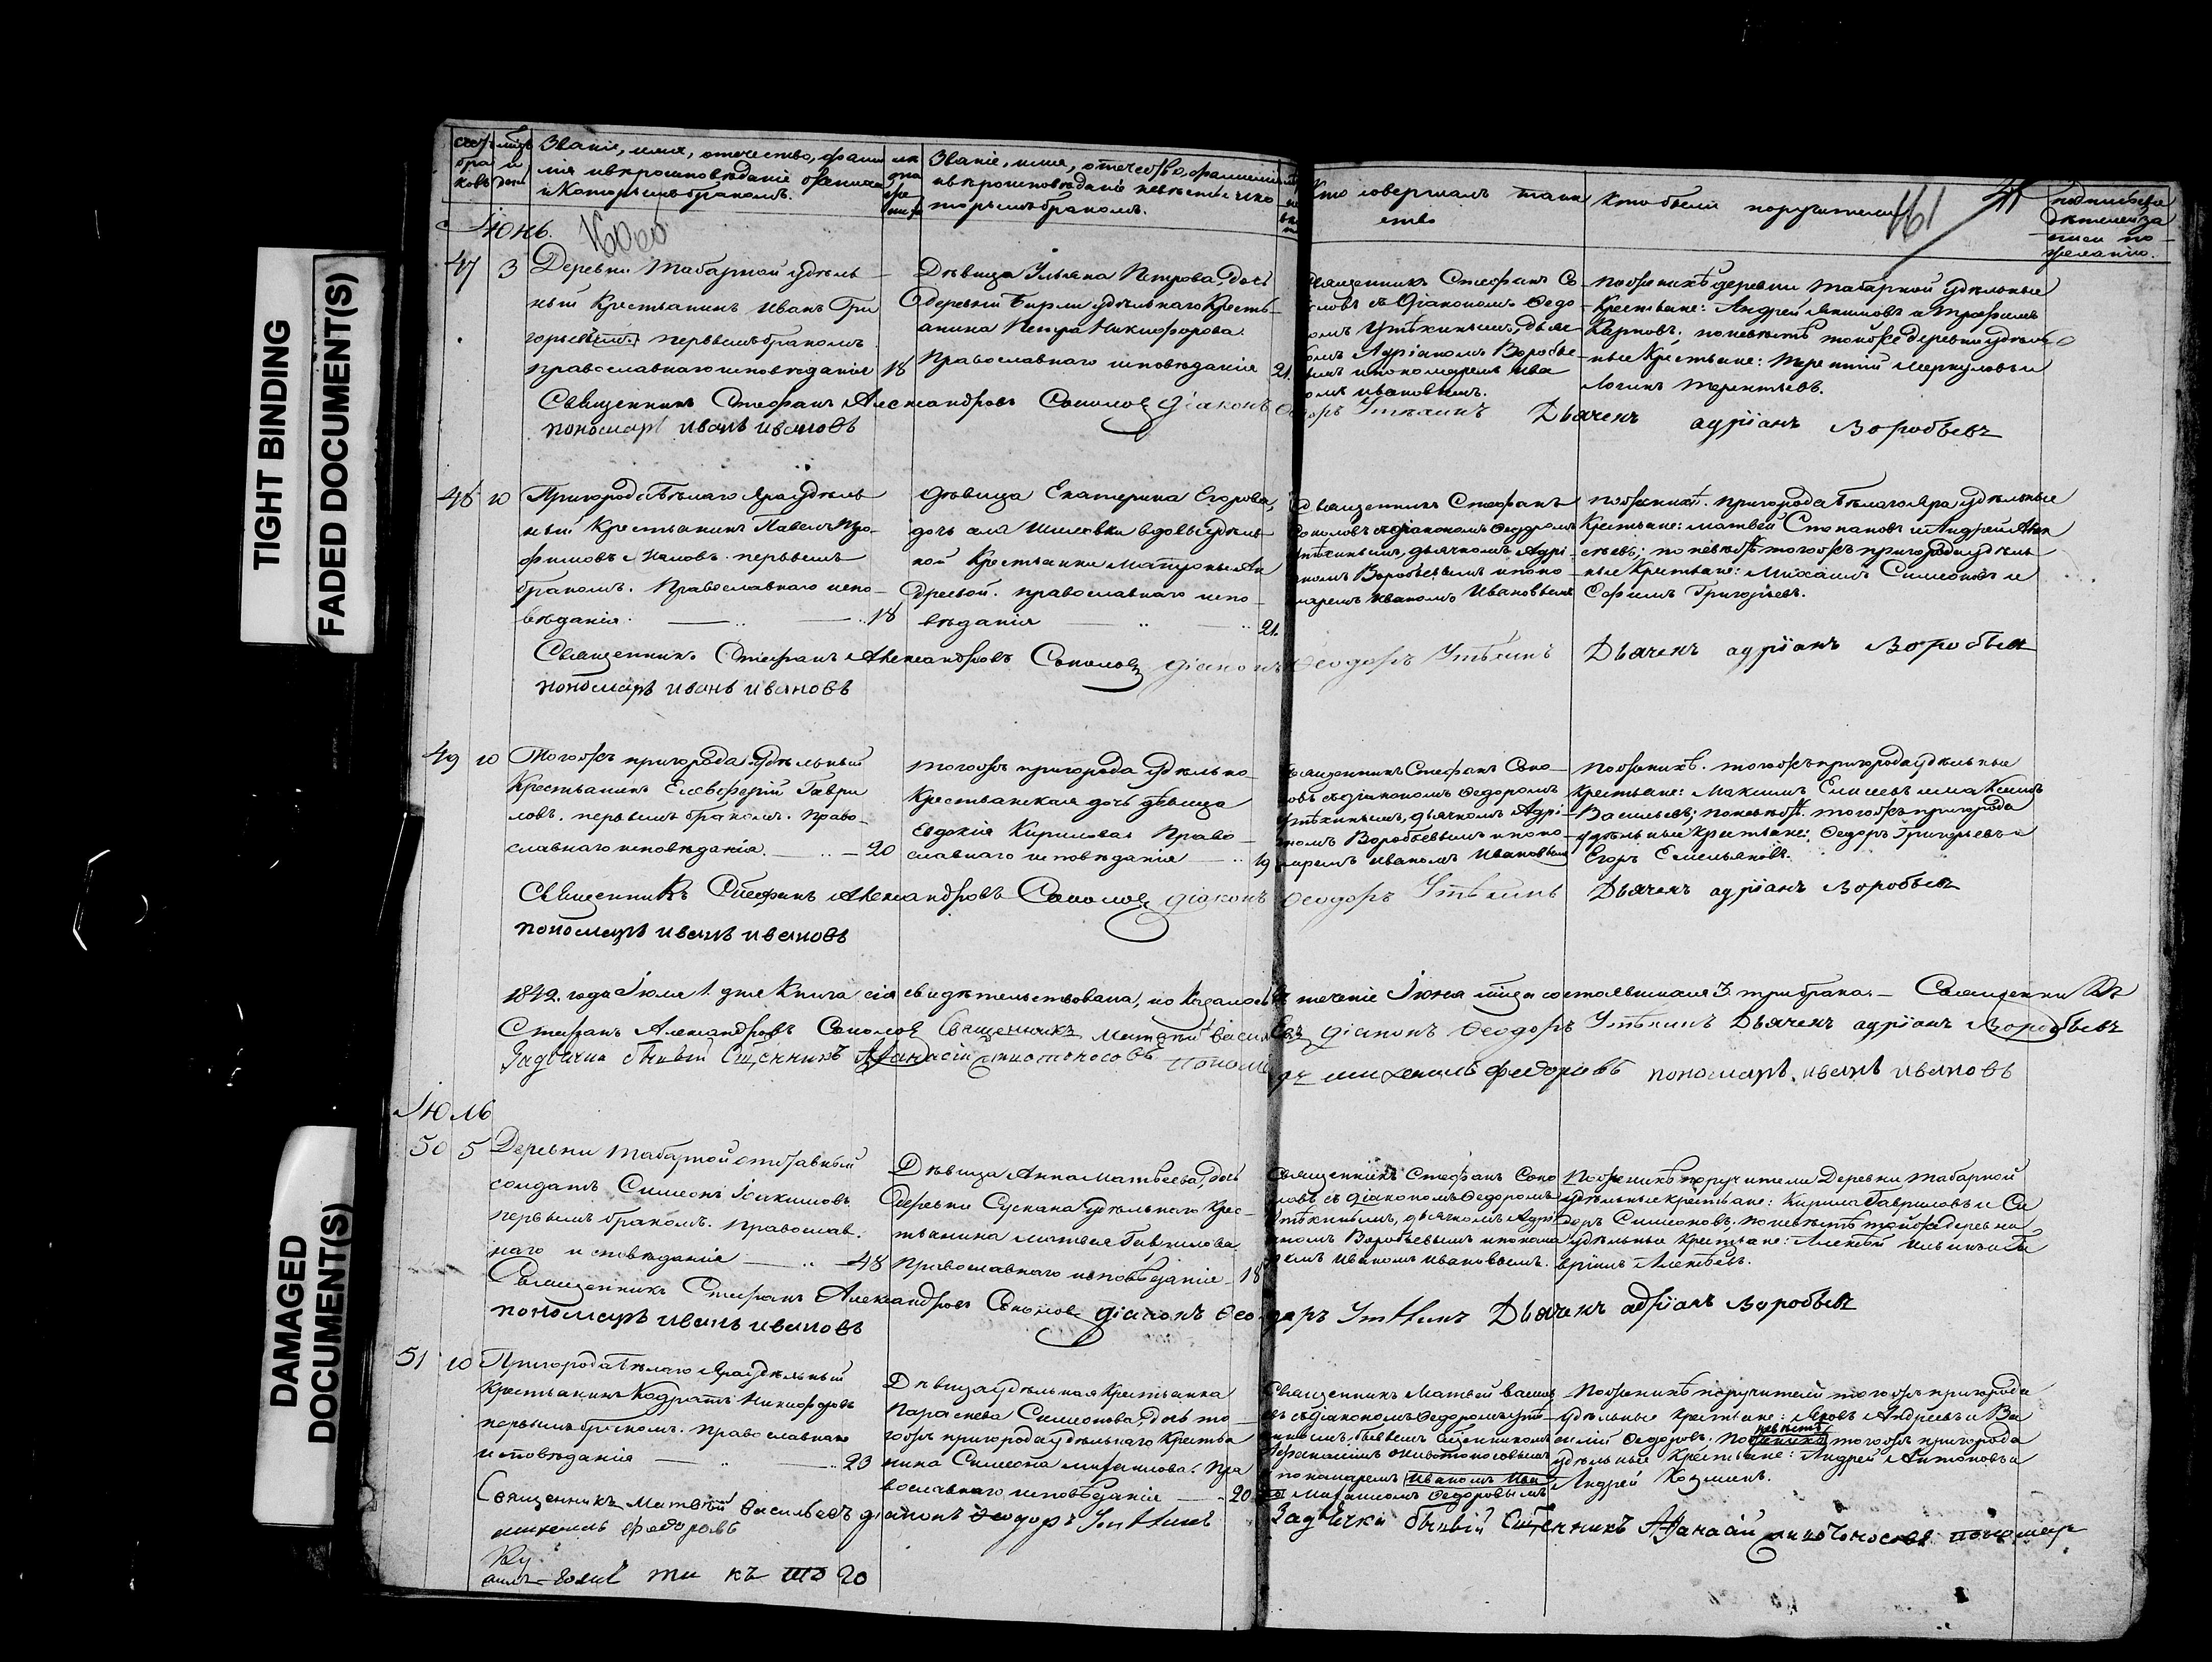 TIGHT BINDING
FADED DOCUMENT(S)
DAMAGED
DOCUMENT(S)
Званіе, имя, отечество, фами
лія и вѣроисповѣданіе жениха
и которымъ бракомъ.
Званіе, имя, отечество, фамилія
и вѣроисповѣданіе невѣсты и ко
торымъ бракомъ.
Кто совершалъ таин
ство
Кто были поручители
161
Іюнь.
47 3 Деревни Табарной удѣль
ный Крестьянинъ Иванъ Гри
горьевъ первымъ бракомъ
православнаго исповѣданія 18
Дѣвица Ульяна Петрова, дочь
деревни Бирли удѣльнаго Кресть
анина Петра Никифорова
Православнаго исповѣданія 21.
Священникъ Стефанъ Со
ловъ съ Діакономъ Ѳедо
ромъ Утѣкинымъ, дьяч
комъ Адріаномъ Воробье
вымъ и пономаремъ Ива
номъ Ивановымъ.
По женихѣ деревни Табарной удѣльные
Крестьяне: Андрей Якимовъ и Трофимъ
Карповъ; по невѣстѣ той же деревни удѣль
ные Крестьяне: Терентій Меркуловъ и
Логинъ Терентьевъ.
Священникъ Стефанъ Александровъ Соколовъ діаконъ Ѳеодоръ Утѣкинъ Дьячекъ адріанъ Воробьевъ
пономарь иванъ ивановъ
48 10 Пригорода Бѣлаго Яра удѣль
ный Крестьянинъ Павелъ Тро
фимовъ первымъ
бракомъ. Православнаго испо
вѣданія 18
Дѣвица Екатерина Егорова,
дочь вдовы удѣль
ной Крестьянки Матроны Ан
дреевой. православнаго испо
вѣданія 21.
Священникъ Стефанъ
Соколовъ съ діакономъ Ѳедоромъ
Утѣкинымъ, дьячкомъ Адрі
аномъ Воробьевымъ и поно
маремъ Иваномъ Ивановымъ
По женихѣ. пригорода Бѣлаго Яра удѣльные
Крестьяне: Матвей Степановъ и Андрей Алек
сѣевъ; по невѣстѣ того жъ пригорода удѣль
ные Крестьяне: Михаилъ Симеоновъ и
Ефимъ Григорьевъ.
Священникъ Стефанъ Александровъ Соколовъ діаконъ Ѳеодоръ Утѣкинъ Дьячекъ адріанъ Воробьевъ
пономарь иванъ ивановъ
49 10 Того жъ пригорода удѣльный
Крестьянинъ Елевферій Гаври
ловъ. первымъ бракомъ. Право
славнаго исповѣданія. 20
Того жъ пригорода удѣльно
Крестьянская дочь дѣвица
Евдокія Кирилова Право
славнаго исповѣданія 19
Священникъ Стефанъ Соко
ловъ съ діакономъ Ѳедоромъ
Утѣкинымъ, дьячкомъ Адрі
аномъ Воробьевымъ и поно
маремъ Иваномъ Ивановымъ
По женихѣ. того жъ пригорода удѣльные
Крестьяне: Максимъ Елисеевъ и Максимъ
Васильевъ; по невѣстѣ. того жъ пригорода
удѣльные крестьяне: Ѳедоръ Григорьевъ и
Егоръ Емельяновъ.
Священникъ Стефанъ Александровъ Соколовъ діаконъ Ѳеодоръ Утѣкинъ Дьячекъ адріанъ Воробьевъ
пономарь иванъ ивановъ
1842. года Іюля 1. дня Книга сія свидѣтельствована, по въ теченіе Іюня мѣсяца состоявшихся 3. три брака. Священникъ
Стефанъ Александровъ Соколовъ Священникъ Матвѣй Васильевъ діаконъ Ѳеодоръ Утѣкинъ Дьячекъ адріанъ Воробьевъ
бывый Священникъ Афанасій Животоносовъ пономарь михаилъ федоровъ пономарь иванъ ивановъ
Іюль
50 5 Деревни Табарной отставный
солдатъ Симеонъ Іоакимовъ
первымъ бракомъ. Православ
наго исповѣданія 48
Дѣвица Анна Матвеева, дочь
деревни Сускана удѣльнаго Крес
тьянина Матвея Гаврилова
Православнаго исповѣданія 18
Священникъ Стефанъ Соко
ловъ съ діакономъ Ѳедоромъ
Утѣкинымъ, дьячкомъ Адрі
аномъ Воробьевымъ и понома
ремъ Иваномъ Ивановымъ.
По женихѣ поручители Деревни Табарной
удѣльные крестьяне: Кирила Гавриловъ и Си
доръ Симеоновъ. по невѣстѣ той же деревни
удѣльные Крестьяне: Алексѣй Ильинъ и Га
врилъ Алексѣевъ.
Священникъ Стефанъ Александровъ Соколовъ діаконъ Ѳеодоръ Утѣкинъ Дьячекъ адріанъ Воробьевъ
пономарь иванъ ивановъ
51 10 Пригорода Бѣлаго Яра удѣльный
Крестьянинъ Кодратъ Никифоровъ
первымъ бракомъ. православнаго
исповѣданія 23
Дѣвица удѣльная Крестьянка
Параскева Симеонова, дочь то
гожъ пригорода удѣльнаго Крестья
нина Симеона Михаилова. Пра
вославнаго исповѣданія 20
Священникъ Матвѣй Василь
евъ съ діакономъ Ѳедоромъ Утѣ
кинымъ бывшимъ Священникомъ
Афанасіемъ Животоносовымъ
и пономаремъ Иваномъ Ива
Михаиломъ Ѳедоровымъ
По женихѣ поручители того жъ пригорода
удѣльные крестьяне: Яковъ Андреевъ и Ва
силій Ѳедоровъ. По невѣстѣ того жъ пригорода
удѣльные Крестьяне: Андрей Антоновъ и
Андрей Козминъ.
Священникъ Матвѣй Васильевъ діаконъ Ѳеодоръ Утѣкинъ бывый Священникъ Афанасій Животоносовъ пономарь
михаилъ федоровъ
20